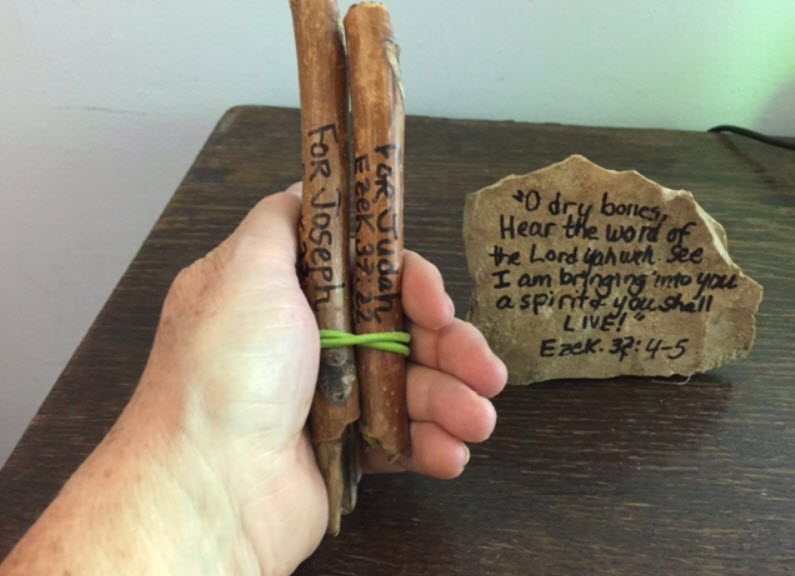 FOR JOSEPH
FOR Judah
EZEK. 37:22
"O dry bones,
Hear the word of
the Lord Yahweh. See
I am bringing into you
a spirit & you shall
LIVE!"
Ezek. 37:4-5